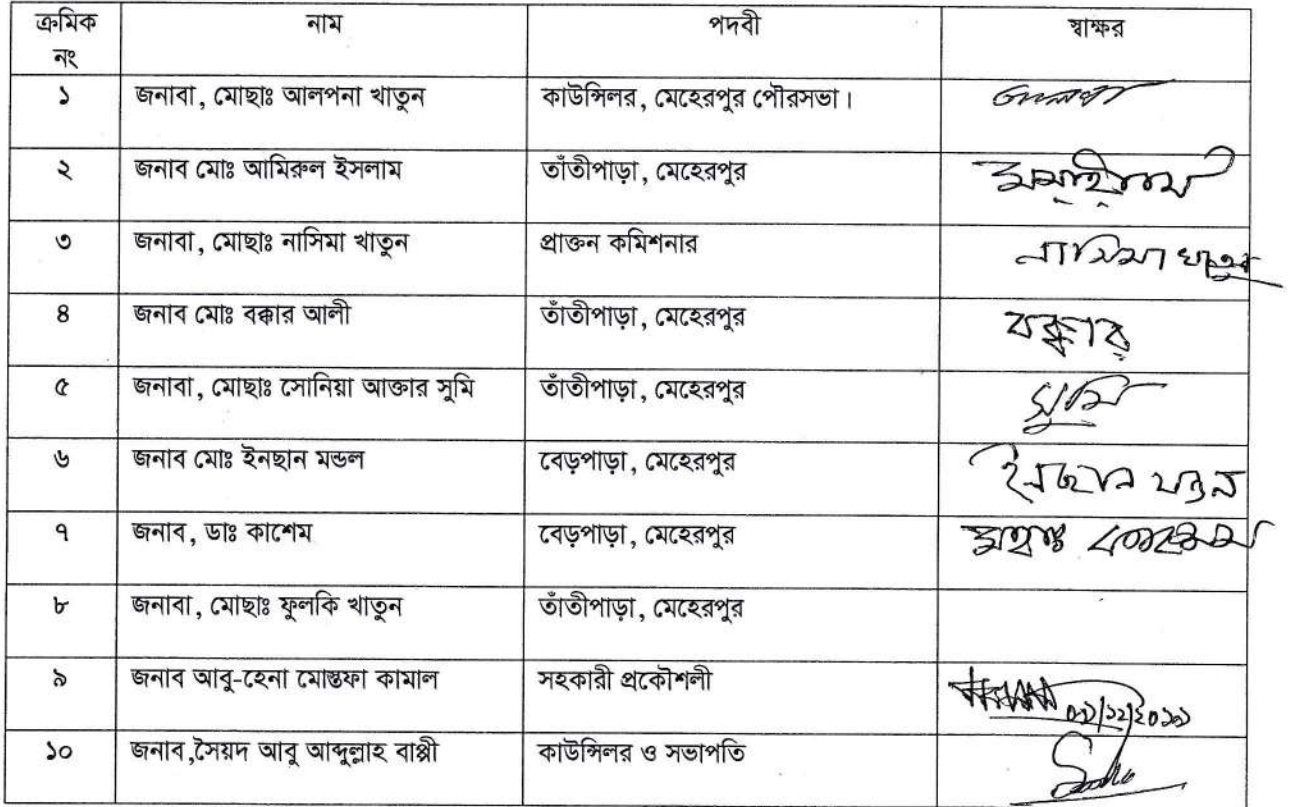 ক্রমিক নং নাম পদবী স্বাক্ষর
১ জনাবা, মোছাঃ আলপনা খাতুন কাউন্সিলর, মেহেরপুর পৌরসভা।
২ জনাব মোঃ আমিরুল ইসলাম তাঁতীপাড়া, মেহেরপুর
৩ জনাবা, মোছাঃ নাসিমা খাতুন প্রাক্তন কমিশনার নাসিমা খাতুন
৪ জনাব মোঃ বক্কার আলী তাঁতীপাড়া, মেহেরপুর বক্কার
৫ জনাবা, মোছাঃ সোনিয়া আক্তার সুমি তাঁতীপাড়া, মেহেরপুর সুমি
৬ জনাব মোঃ ইনছান মন্ডল বেড়পাড়া, মেহেরপুর ইনছান মন্ডল
৭ জনাব, ডাঃ কাশেম বেড়পাড়া, মেহেরপুর
৮ জনাবা, মোছাঃ ফুলকি খাতুন তাঁতীপাড়া, মেহেরপুর
৯ জনাব আবু-হেনা মোস্তফা কামাল সহকারী প্রকৌশলী
১০ জনাব,সৈয়দ আবু আব্দুল্লাহ বাপ্পী কাউন্সিলর ও সভাপতি